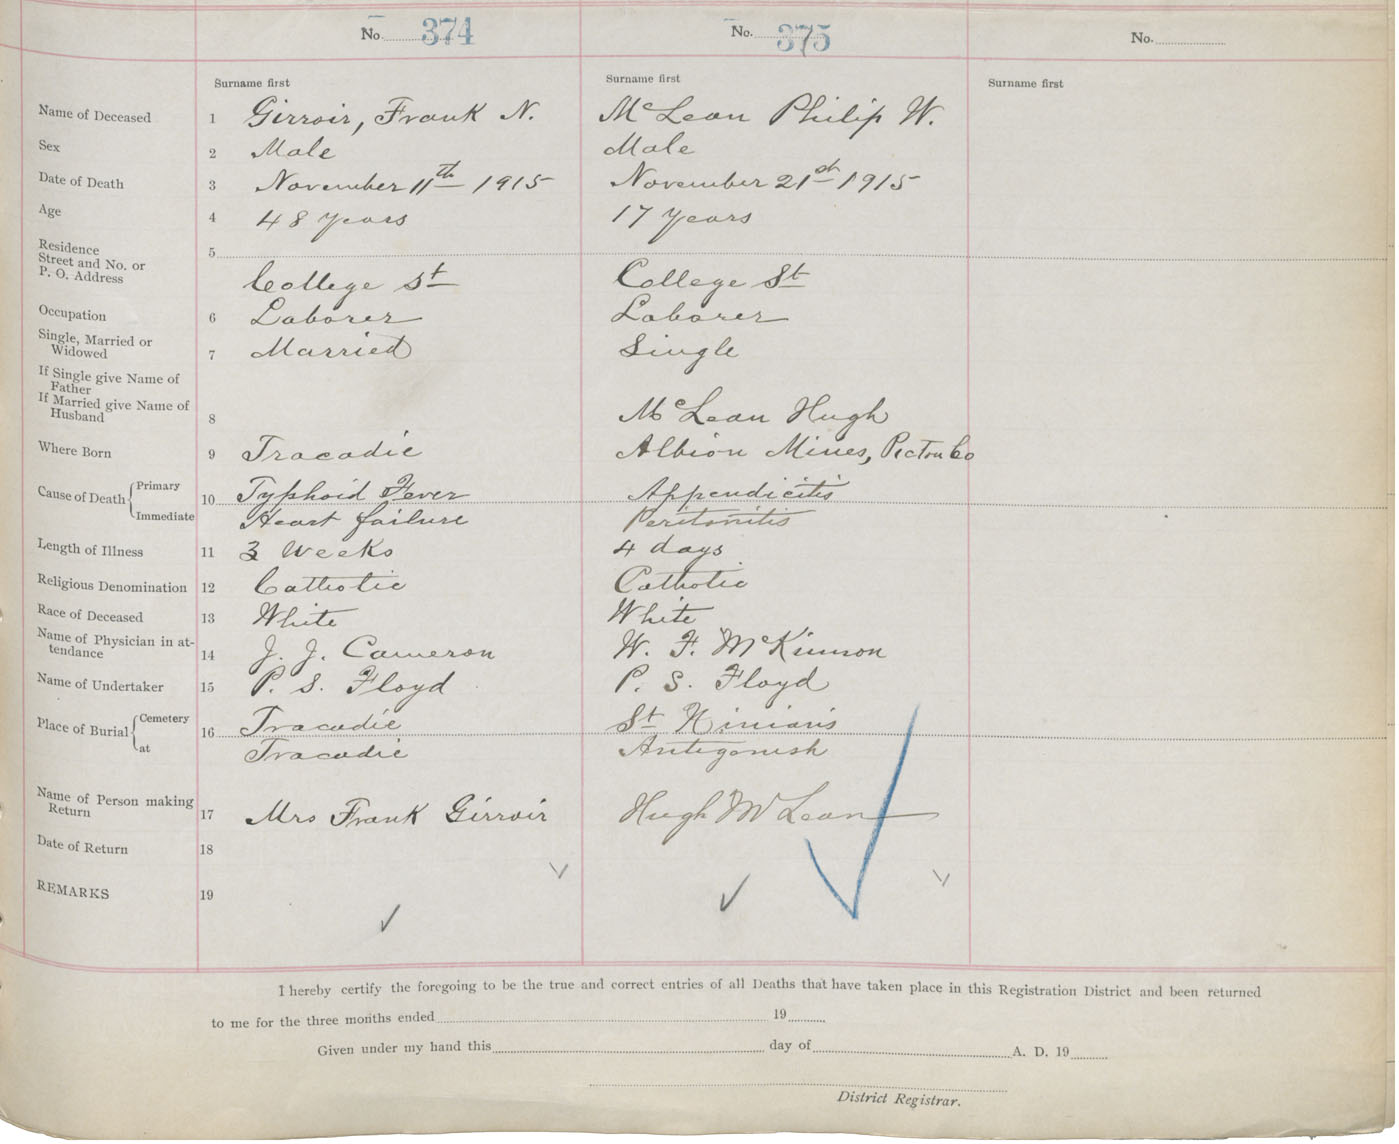 No. 374 No. 375 No.
Surname first Surname first Surname first
Name of Deceased 1 Girroir, Frank N. McLean Philip W.
Sex 2 Male Male
Date of Death 3 November 11th 1915 November 21st 1915
Age 4 48 years 17 years
Residence
Street and No. or
P. O. Address 5 College St College St
Occupation 6 Laborer Laborer
Single, Married or
Widowed 7 Married Single
If Single give Name of
Father
If Married give Name of
Husband 8 McLean Hugh
Where Born 9 Tracadie Albion Mines, Pictou Co
Cause of Death Primary 10 Typhoid Fever Appendicitis
Immediate Heart failure Peritonitis
Length of Illness 11 3 Weeks 4 days
Religious Denomination 12 Catholic Catholic
Race of Deceased 13 White White
Name of Physician in at-
tendance 14 J. J. Cameron W. F. McKinnon
Name of Undertaker 15 P. S. Floyd P. S. Floyd
Place of Burial Cemetery 16 Tracadie St Ninians
at Tracadie Antigonish
Name of Person making
Return 17 Mrs Frank Girroir Hugh McLean
Date of Return 18
REMARKS 19
I hereby certify the foregoing to be the true and correct entries of all Deaths that have taken place in this Registration District and been returned
to me for the three months ended 19
Given under my hand this day of A. D. 19
District Registrar.